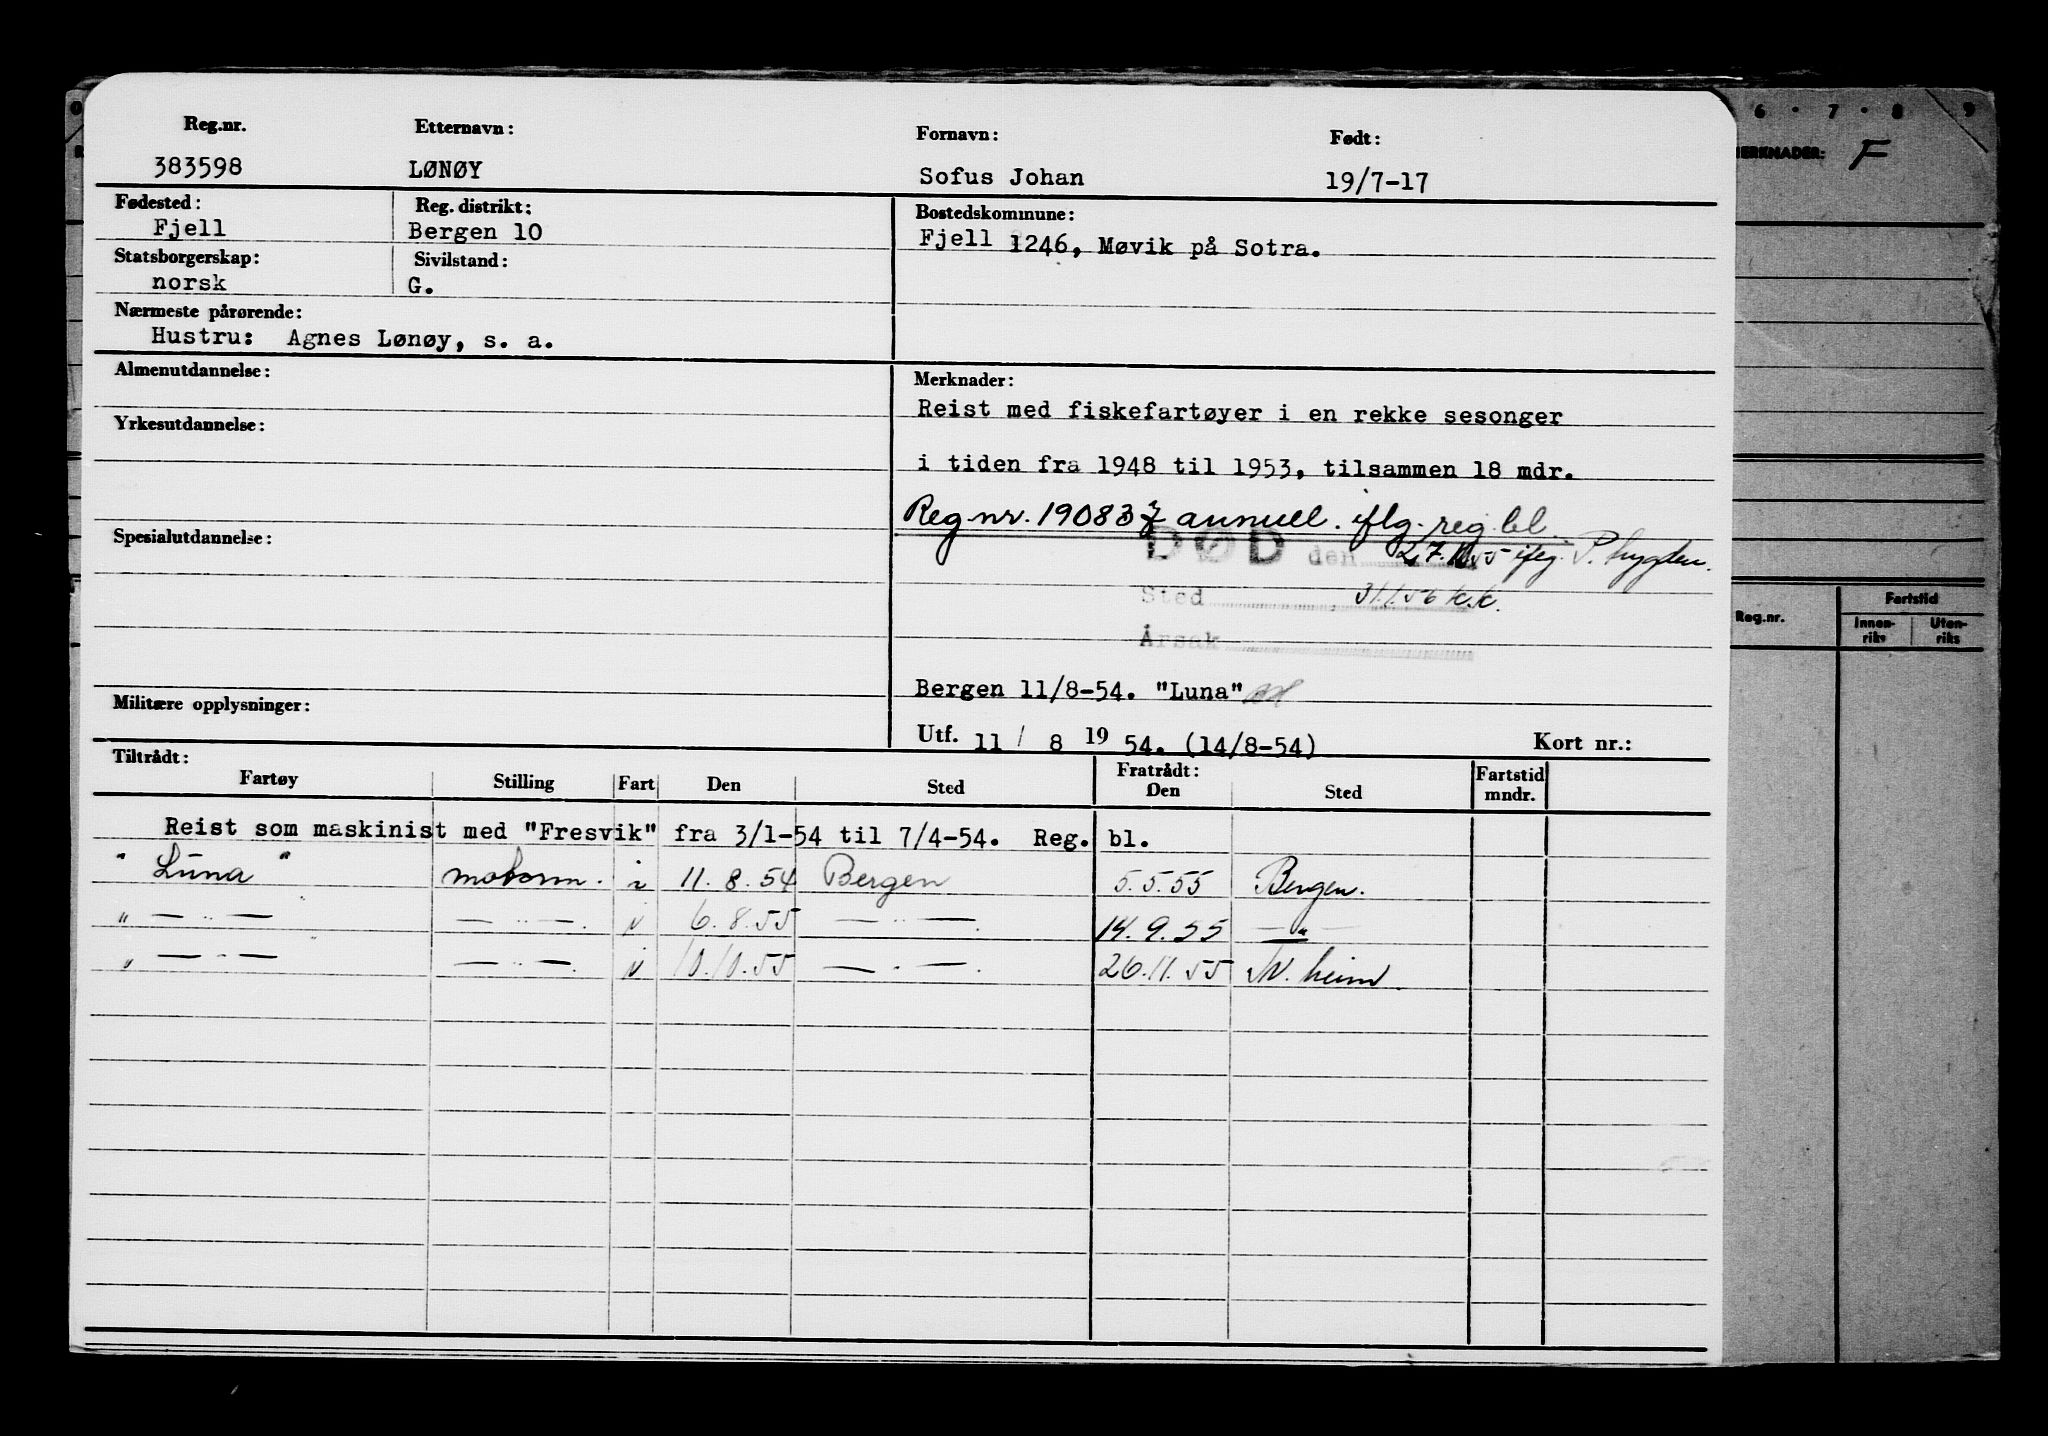 Reg.nr. Etternavn: Fornavn: Født:
383598 LØNØY Sofus Johan 19/7-17
Fødested: Reg. distrikt: Bostedskommune:
Fjell Bergen 10 Fjell 1246, Møvik på Sotra.
Statsborgerskap: Sivilstand:
norsk G.
Nærmeste pårørende:
Hustru: Agnes Lønøy, s. a.
Almenutdannelse: Merknader:
Reist med fiskefartøyer i en rekke sesonger
Yrkesutdannelse:
i tiden fra 1948 til 1953, tilsammen 18 mdr.
Reg.nr. 190837 annull. iflg. reg.bl.
Spesialutdannelse: DØD den 27.11.55 iflg.
Sted 31.1.56 K.K.
Årsak
Bergen 11/8-54. "Luna"
Militære opplysninger:
Utf. 11 / 8 19 54. (14/8-54) Kort nr.:
Tiltrådt: Fratrådt: Fartstid
Fartøy Stilling Fart Den Sted Den Sted mndr.
Reist som maskinist med "Fresvik" fra 3/1-54 til 7/4-54. Reg. bl.
"Luna" motorm. i 11.8.54 Bergen 5.5.55 Bergen.
" — " — — " — . i 6.8.55 — " — . 14.9.55 — " —
" — " — — " — . i 10.10.55 — " — . 26.11.55 Tr.heim
6 · 7 · 8 · 9
MERKNADER: F
Reg.nr. Fartstid
Innen- Uten-
riks riks